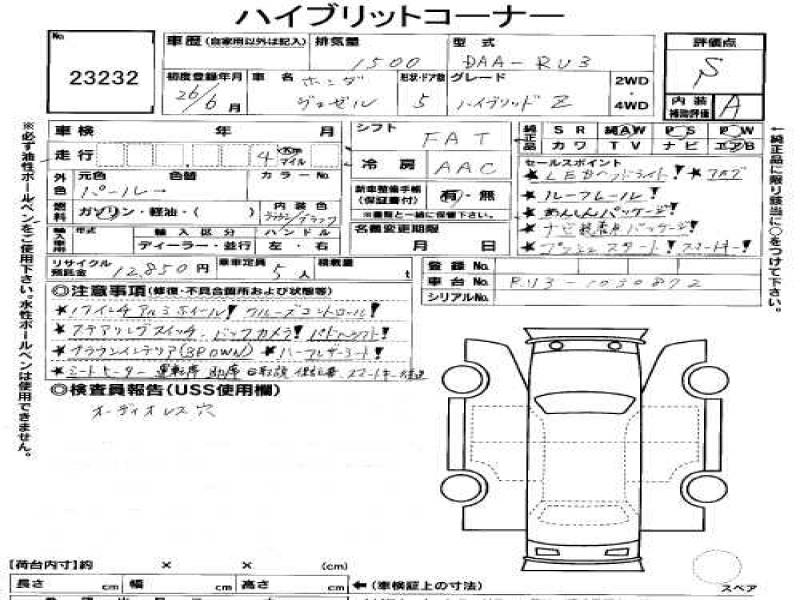 ハイブリットコーナー
No.
23232
車歴(自家用以外は記入)
排気量
1500
型式
DAA-RU3
評価点
S
初度登録年月
26/6月
車名
ホンダ
ヴェゼル
形状・ドア数
5
グレード
ハイブリッド Z
2WD
・
4WD
内装
補助評価
A
車検 年 月
シフト
FAT
純正品
SR 純AW PS PW
カワ TV ナビ エアB
走行
4
Km
マイル
冷房
AAC
セールスポイント
★LEDヘッドライト!
★ルーフレール!
★あんしんパッケージ!
★ナビ装着用パッケージ!
★プッシュスタート! スマートキー!
外色
元色
パール
色替
カラーNo.
新車整備手帳
(保証書付)
有・無
※書類と一緒に保管下さい。
燃料
ガソリン・軽油・( )
内装色
ブラウン/ブラック
輸入車用
年式
輸入区分
ディーラー・並行
ハンドル
左・右
名義変更期限
月 日
リサイクル
預託金
12,850円
乗車定員
5人
積載量
t
登録No.
車台No.
RU3-1030872
シリアルNo.
◎注意事項(修復・不具合箇所および状態等)
★17インチアルミホイール! クルーズコントロール!
★ステアリングスイッチ・バックカメラ! パドルシフト!
★ブラウンインテリア(BROWN) ★ハーフレザーシート!
★シートヒーター 運転席 助席
◎検査員報告(USS使用欄)
オーディオレス穴
※必ず油性ボールペンをご使用下さい。水性ボールペンは使用できません。
←純正品に限り該当に○をつけて下さい。
【荷台内寸】約 × × (cm)
長さ cm 幅 cm 高さ cm ←(車検証上の寸法)
スペア